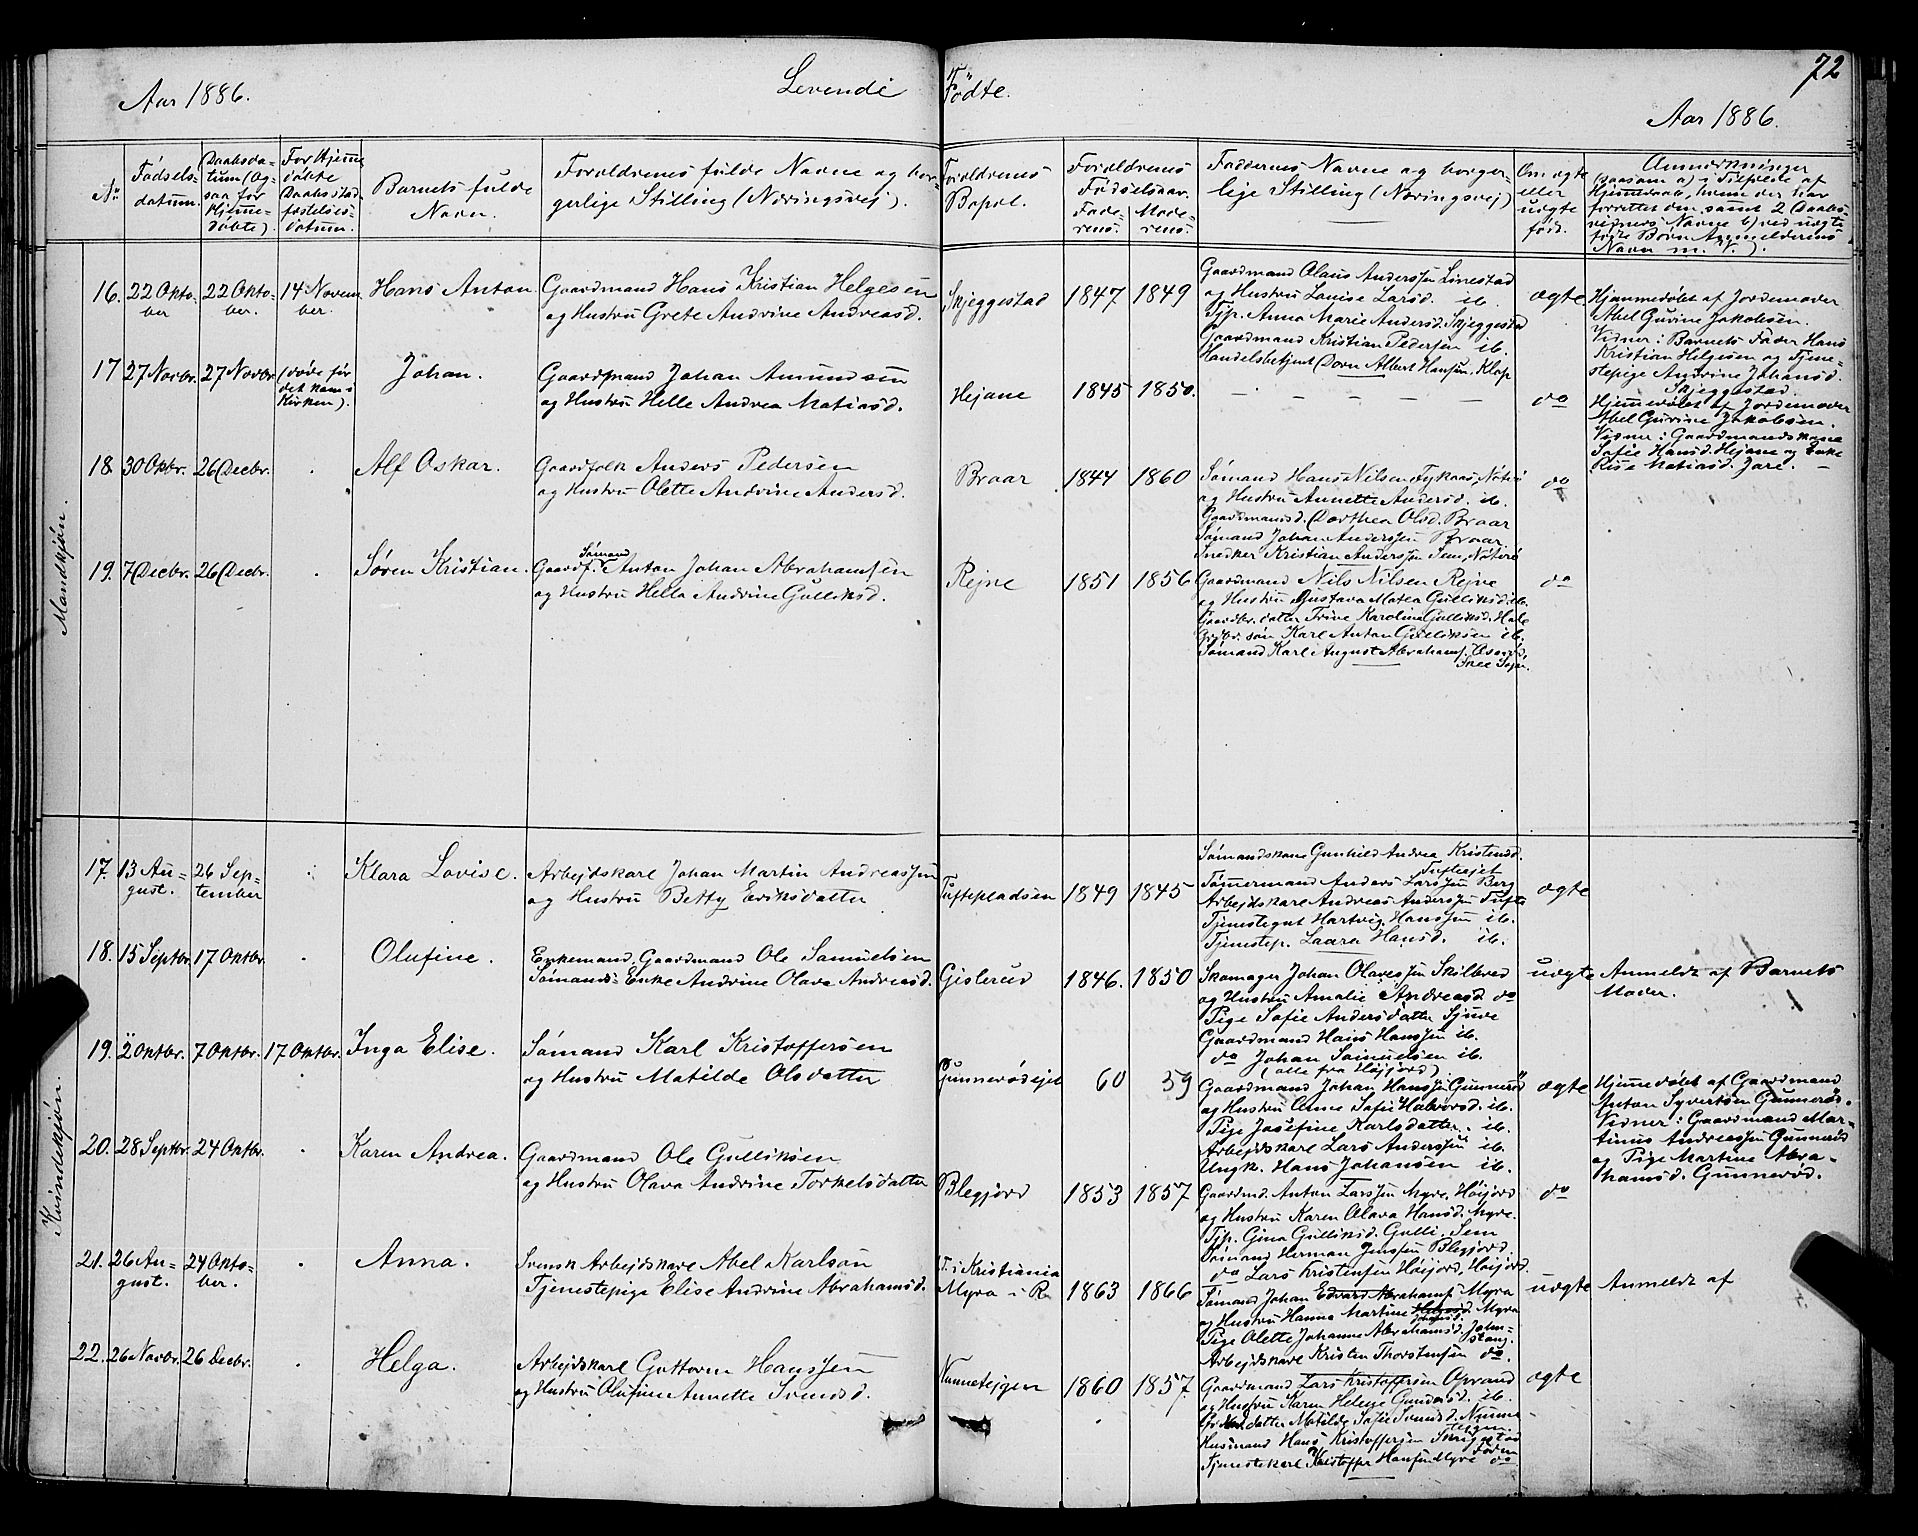 72
Aar 1886.
Levende Fødte.
Aar 1886.
№
Fødsels-
datum.
Daabsda-
tum (og-
saa for
Hjemme-
døbte).
For Hjemme
døbte
Daabs stad
fæstelses-
datum.
Barnets fulde
Navn.
Forældrenes fulde Navne og bor-
gerlige Stilling (Næringsvej).
Forældrenes
Bopæl.
Forældrenes
Fødselsaar.
Fade-
rens.
Mode-
rens.
Faddernes Navne og borger-
lige Stilling (Næringsvej)
Om ægte
eller
uægte
født.
Anmerkninger
(saasom a) i Tilfælde af
Hjemmedaab, hvem der har
forrettet den samt 2 Daabs-
vidners Navne b) ved uægte
fødte Børn Anmelderens
Navn m. V.).
Mandkjøn.
16. 22 Okto-
ber
22 Okto-
ber.
14 Novem
ber.
Hans Anton.
Gaardmand Hans Kristian Helgesen
og Hustru Grete Andrine Andreasd.
Skjeggestad
1847 1849
Gaardmand Olaus Anderssen Linestad
og Hustru Louise Larsd. ib.
Tjp. Anna Marie Andersd. Skjeggestad
Gaardmand Kristian Pedersen ib.
Handelsbetjent Dorn Albert Hansen, Klop
ægte
Hjemmedøbt af Jordemoder
Abel Gurine Jakobsen.
Vidner: Barnets Fader Hans
Kristian Helgesen og Tjene-
stepige Andrine Johansd.
Skjeggestad.
17 27 Novbr. 27 Novbr. (døde før
det kom i
Kirken).
Johan.
Gaardmand Johan Amundsen
og Hustru Helle Andrea Matiasd.
Hejane
1845 1850.
do
Hjemmedøbt af Jordemoder
Abel Gurine Jakobsen.
Vidner: Gaardmandskone
Sofie Hansd. Hejane og Enke
Rise Matiasd. Jare.
18. 30 Oktbr. 26 Decbr.
Alf Oskar.
Gaardfolk Anders Pedersen
og Hustru Olette Andrine Andersd.
Braar
1844 1860
Sømand Hans Nilsen Nøtterø
og Hustru Annette Andersd. ib.
Gaardmandsd. Dorthea Olsd. Braar
Sømand Johan Anderssen Braar
Snedker Kristian Anderssen Sem, Nøterø
do
19. 7 Decbr. 26 Decbr.
Søren Kristian.
Sømand
Gaardf. Anton Johan Abrahamsen
og Hustru Hella Andrine Gulliksd.
Rejne
1851 1856
Gaardmand Nils Nilsen Rejne
og Hustru Gustava Matea Gulliksd. ib.
Gaardbr. datter Trine Karoline Gulliksd. Hole
Grdbr. søn Karl Anton Gulliksen ib.
Sømand Karl August Abrahams.
do
Kvindekjøn.
17. 13 Au-
gust.
26 Sep-
tember
Klara Lovise.
Arbejdskarl Johan Martin Andreassen
og Hustru Betty Eriksdatter
Tuftepladsen
1849 1845
Sømandskone Gunhild Andrea Kristensd.
Tuftejet
Tømmermand Anders Larssen Berg
Arbejdskarl Andreas Anderssen Tufte
Tjenestegut Hartvig Hanssen ib.
Tjenestep. Laura Hansd. ib.
ægte
18. 15 Septbr. 17 Oktbr.
Olufine.
Enkemand, Gaardmand Ole Samuelsen
Sømands-Enke Andrine Olava Andreasd.
Gislerud
1846. 1850
Skomager Johan Olavessen Skilbred
og Hustru Amalie Andreasd do
Pige Sofie Andersdatter Sjuve
Gaardmand Hans Hanssen ib.
do Johan Samuelsen ib.
(alle fra Høijord)
uægte
Anmeldt af Barnets
Moder.
19. 2 Oktbr. 7 Oktbr. 17 Oktbr.
Inga Elise.
Sømand Karl Kristoffersen
og Hustru Matilde Olsdatter
Gunnerødejet
60 59
Gaardmand Johan Hanssen Gunnerød
og Hustru Anne Sofie Halvorsd. ib.
Pige Josefine Karlsdatter. ib.
Arbejdskarl Lars Anderssen ib.
Ungk. Hans Johansen ib.
ægte
Hjemmedøbt af Gaardmand
Anton Syvertsen Gunnerød.
Vidner: Gaardmand Mar-
tinus Andreassen Gunnerød
og Pige Martine Abra-
hamsd. Gunnerød.
20. 28 Septbr. 24 Oktbr.
Karen Andrea.
Gaardmand Ole Gulliksen
og Hustru Olava Andrine Torkelsdatter
Blegjord
1853 1857
Gaardmd. Anton Larssen Myre, Høijord
og Hustru Karen Olava Hansd. Myre.
Tjp. Gina Gulliksd. Gulli, Sem
Sømand Herman Jenssen Blegjord.
do Lars Kristensen Høijord, Høijord.
do
21. 26 Au-
gust.
24 Okto-
ber.
Anna.
Svensk Arbejdskarl Abel Karlson
Tjenestepige Elise Andrine Abrahamsd.
F. i Kristiania
Myra i R.
1863 1866
Sømand Johan Edvard Abrahams. Myra
og Hustru Hanna Martine Helgesd. Myra
Johansd.
Pige Olette Johanne Abrahamsd. John-
stang.
Arbejdskarl Kristen Thorstensen do.
uægte
Anmeldt af
22. 26 Novbr. 26 Decbr.
Helga.
Arbejdskarl Guttorm Hanssen
og Hustru Olufine Annette Svendsd.
Nunnetejgen
1860 1857.
Gaardmand Lars Kristoffersen Oprand
og Hustru Karen Helene Gundersd. ib.
datter Matilde Sofie Svendsd. Nunne-
tejgen
Husmand Hans Kristoffersen
Tjenestekarl Kristoffer Hansen Myre do
ægte